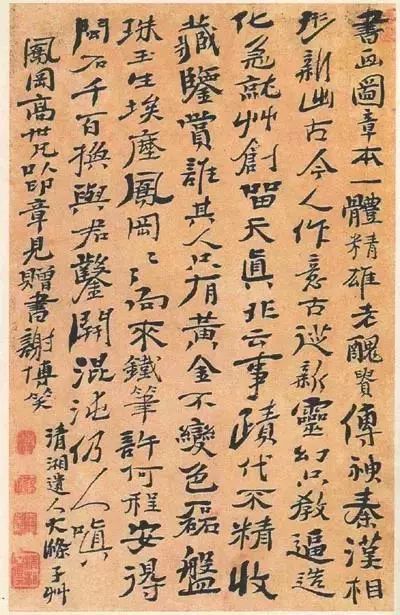 書画圖章本一體精雄老醜貴傳神秦漢相
形新出古今人作意古從新靈幻只教逼造
化急就艸創留天真非云事蹟代不精收
藏鑒賞誰其人只有黃金不變色磊盤
珠玉生埃塵鳳岡鳳岡向來鐵筆許何程安得
石千百與君鑿開混沌仍人嗔
鳳岡高世兄以印章見贈書謝博笑
清湘遺人大滌子艸